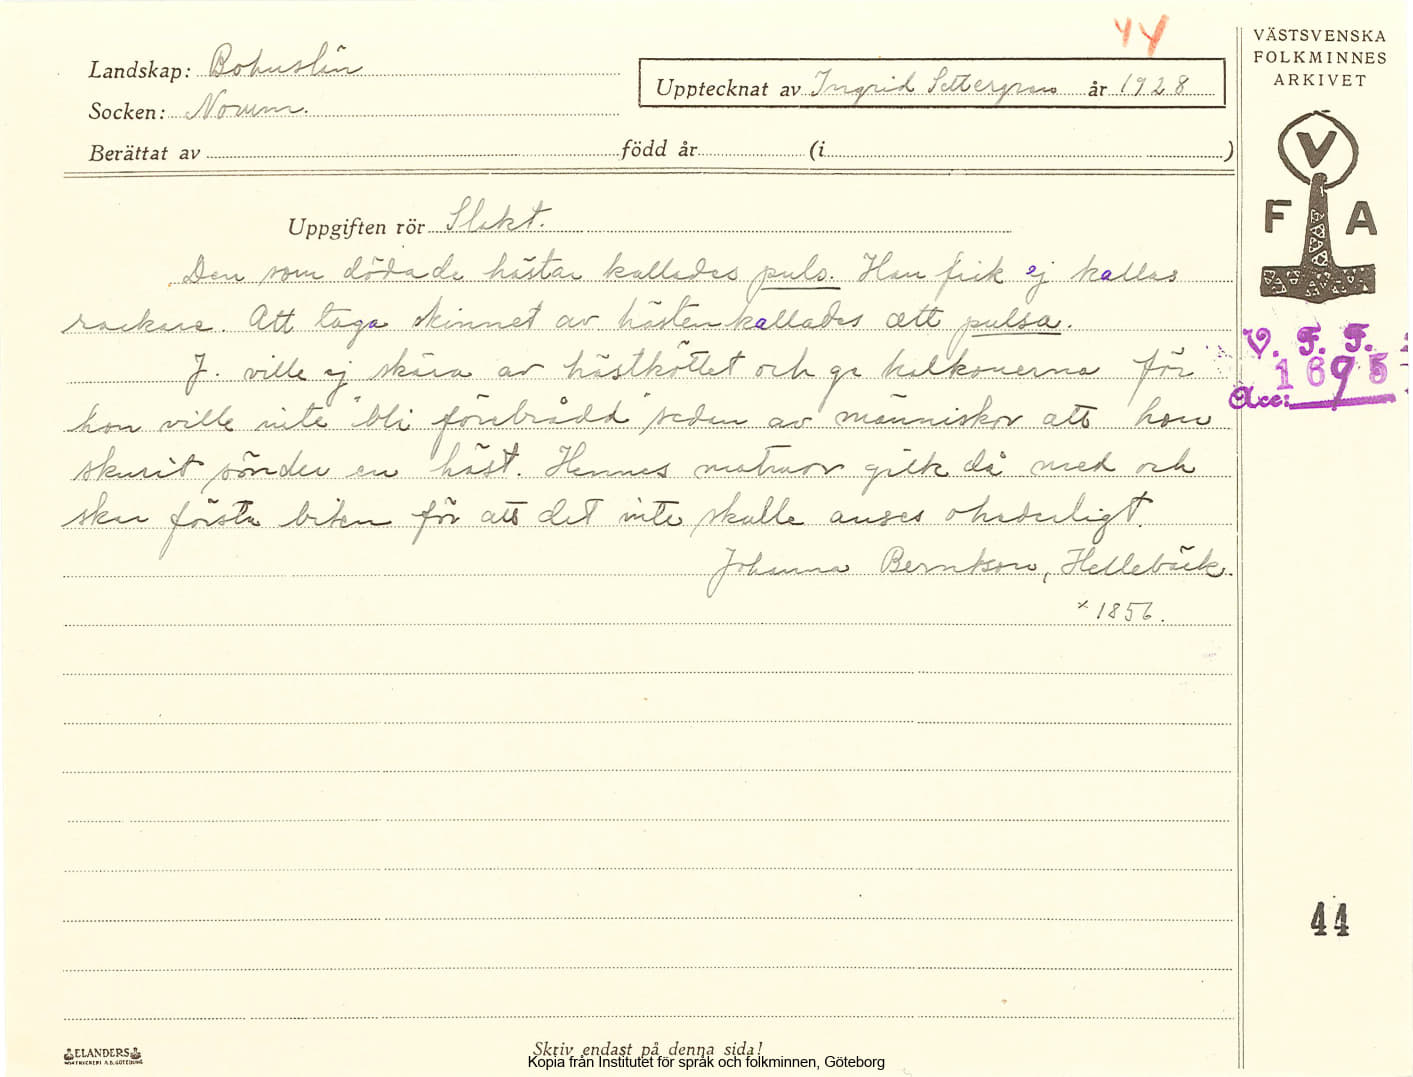 44
Landskap: Bohuslän
Upptecknat av Ingrid Settergren år 1928
Socken: Norum.
Berättat av född år (i )
VÄSTSVENSKA
FOLKMINNES
ARKIVET
V
F A
V. F. F.
1695
Acc:
Uppgiften rör Slakt.
Den som dödade hästar kallades puls. Han fick ej kallas
rackare. Att taga skinnet av hästen kallades att pulsa.
J. ville ej skära av hästköttet och ge kalkonerna för
hon ville inte "bli förebrådd" sedan av människor att hon
skurit sönder en häst. Hennes matmor gick då med och
skar första biten för att det inte skulle anses ohederligt.
Johanna Berntson, Hellebäck.
* 1856.
44
ELANDERS
Skriv endast på denna sida!
Kopia från Institutet för språk och folkminnen, Göteborg